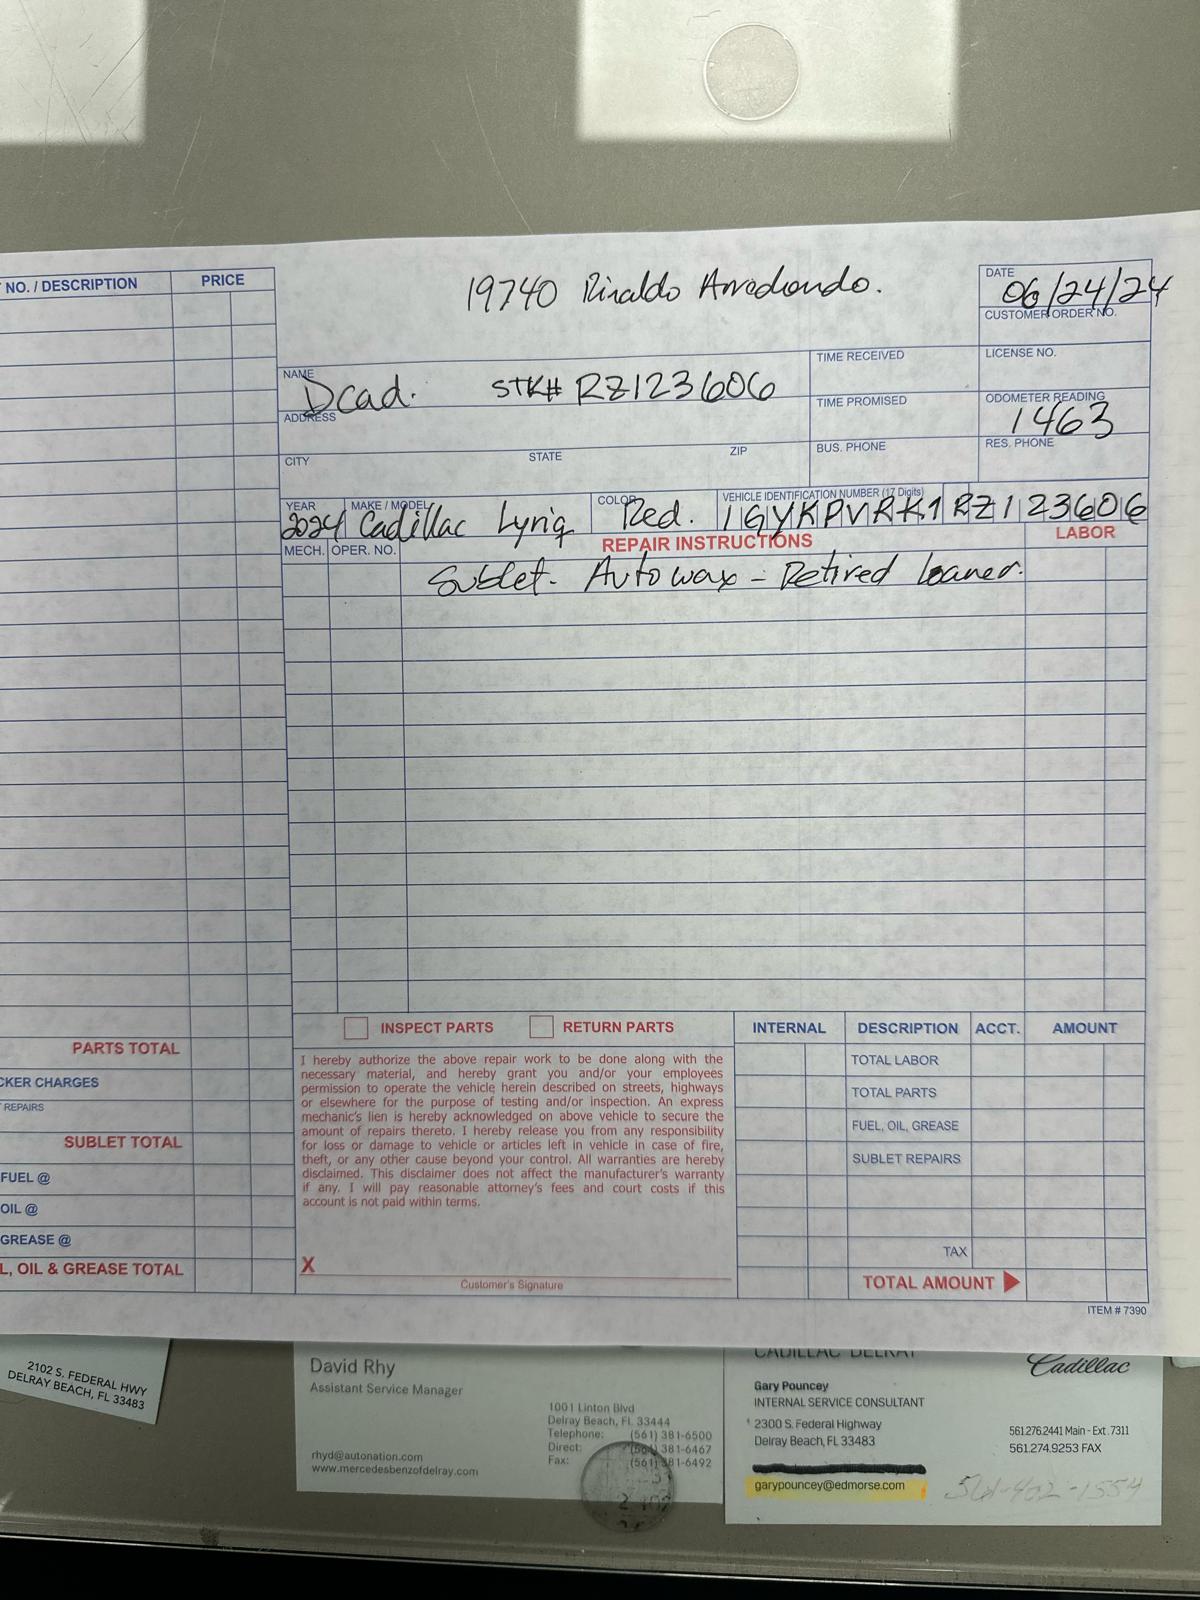 19740 Rinaldo Arredondo.
DATE
06/24/24
CUSTOMER ORDER NO.
NO. / DESCRIPTION PRICE
NAME
Dcad. STK# RZ123606
TIME RECEIVED
LICENSE NO.
ADDRESS
TIME PROMISED
ODOMETER READING
1463
CITY STATE ZIP
BUS. PHONE
RES. PHONE
YEAR MAKE / MODEL COLOR VEHICLE IDENTIFICATION NUMBER (17 Digits)
2024 Cadillac Lyriq Red. 1GYKPVRK1RZ123606
MECH. OPER. NO. REPAIR INSTRUCTIONS LABOR
Sublet. Auto wax - Retired loaner.
INSPECT PARTS RETURN PARTS
I hereby authorize the above repair work to be done along with the
necessary material, and hereby grant you and/or your employees
permission to operate the vehicle herein described on streets, highways
or elsewhere for the purpose of testing and/or inspection. An express
mechanic's lien is hereby acknowledged on above vehicle to secure the
amount of repairs thereto. I hereby release you from any responsibility
for loss or damage to vehicle or articles left in vehicle in case of fire,
theft, or any other cause beyond your control. All warranties are hereby
disclaimed. This disclaimer does not affect the manufacturer's warranty
if any. I will pay reasonable attorney's fees and court costs if this
account is not paid within terms.
X
Customer's Signature
INTERNAL DESCRIPTION ACCT. AMOUNT
TOTAL LABOR
TOTAL PARTS
FUEL, OIL, GREASE
SUBLET REPAIRS
TAX
TOTAL AMOUNT
ITEM # 7390
PARTS TOTAL
CKER CHARGES
REPAIRS
SUBLET TOTAL
FUEL @
OIL @
GREASE @
L, OIL & GREASE TOTAL
2102 S. FEDERAL HWY
DELRAY BEACH, FL 33483
David Rhy
Assistant Service Manager
1001 Linton Blvd
Delray Beach, FL 33444
Telephone: (561) 381-6500
Direct: (561) 381-6467
Fax: (561) 381-6492
rhyd@autonation.com
www.mercedesbenzofdelray.com
CADILLAC DELRAY
Cadillac
Gary Pouncey
INTERNAL SERVICE CONSULTANT
2300 S. Federal Highway
Delray Beach, FL 33483
561.276.2441 Main - Ext. 7311
561.274.9253 FAX
garypouncey@edmorse.com
561-402-1554